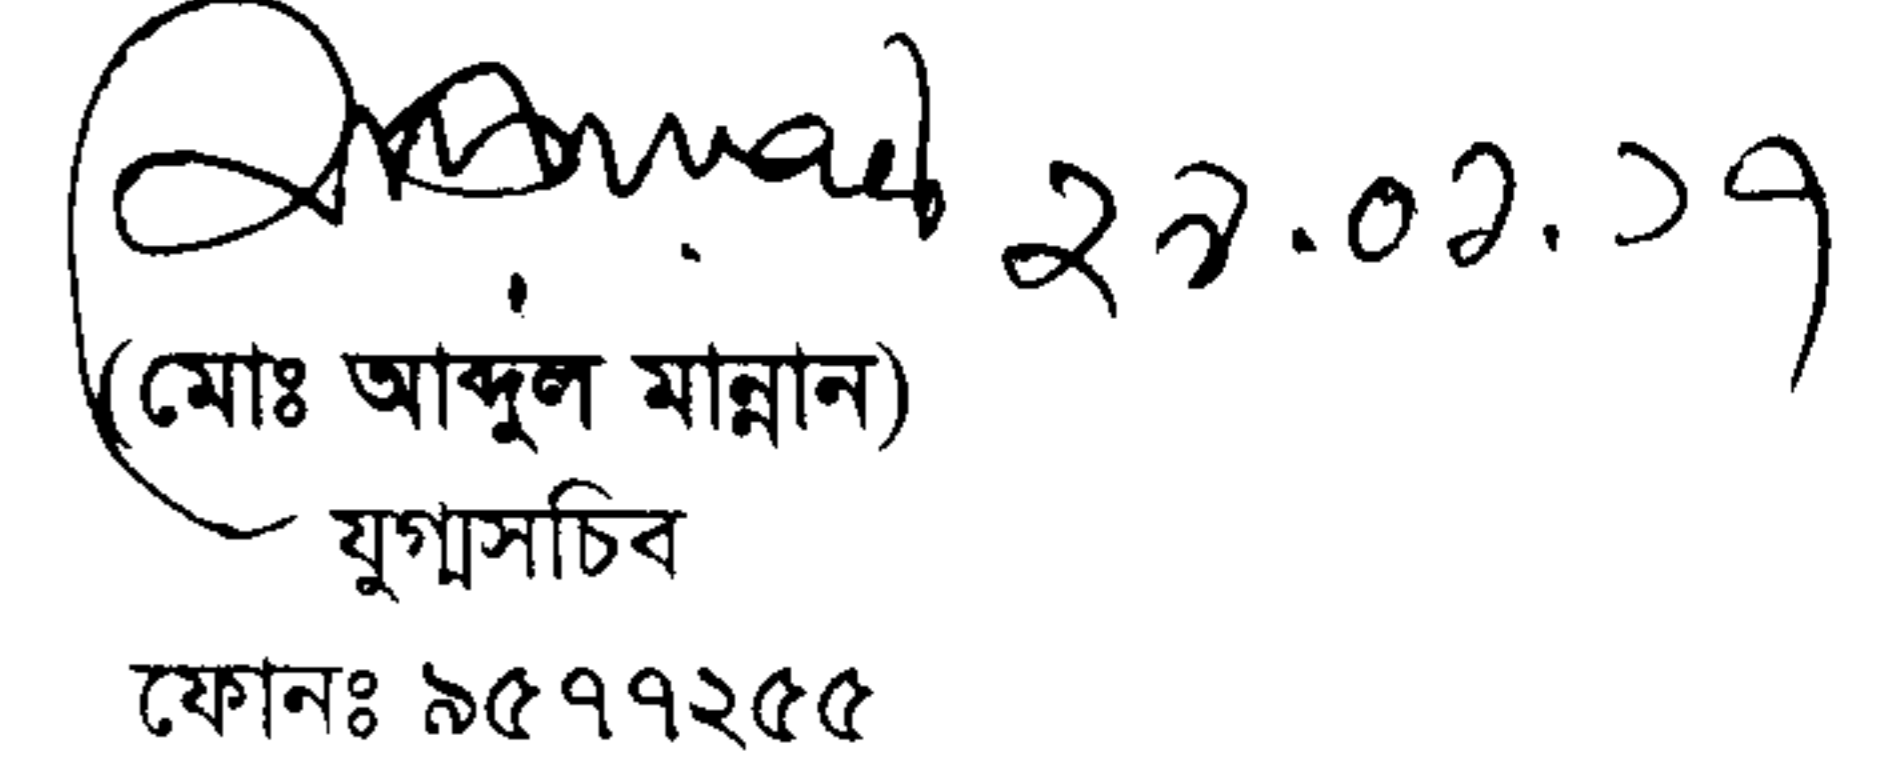 ২২.০২.১৭
(মোঃ আব্দুল মান্নান)
যুগ্মসচিব
ফোনঃ ৯৫৭৭২৫৫